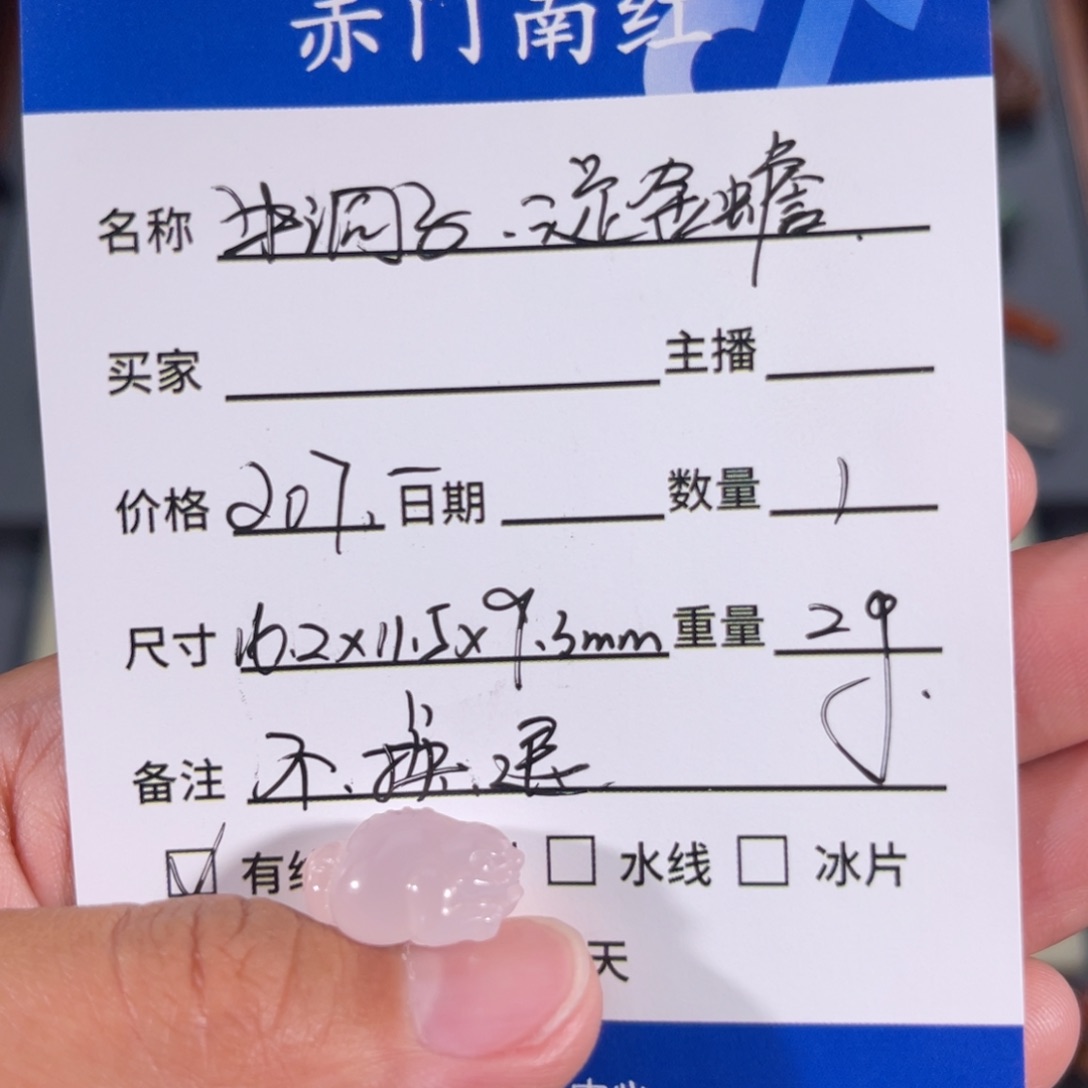 赤门南红
名称 冰洞子.金蟾.
买家 主播
价格 207. 日期 数量 1
尺寸 16.2x11.5x9.3mm 重量 2g.
备注 不.换.退.
☑ 有 □ 水线 □ 冰片
天